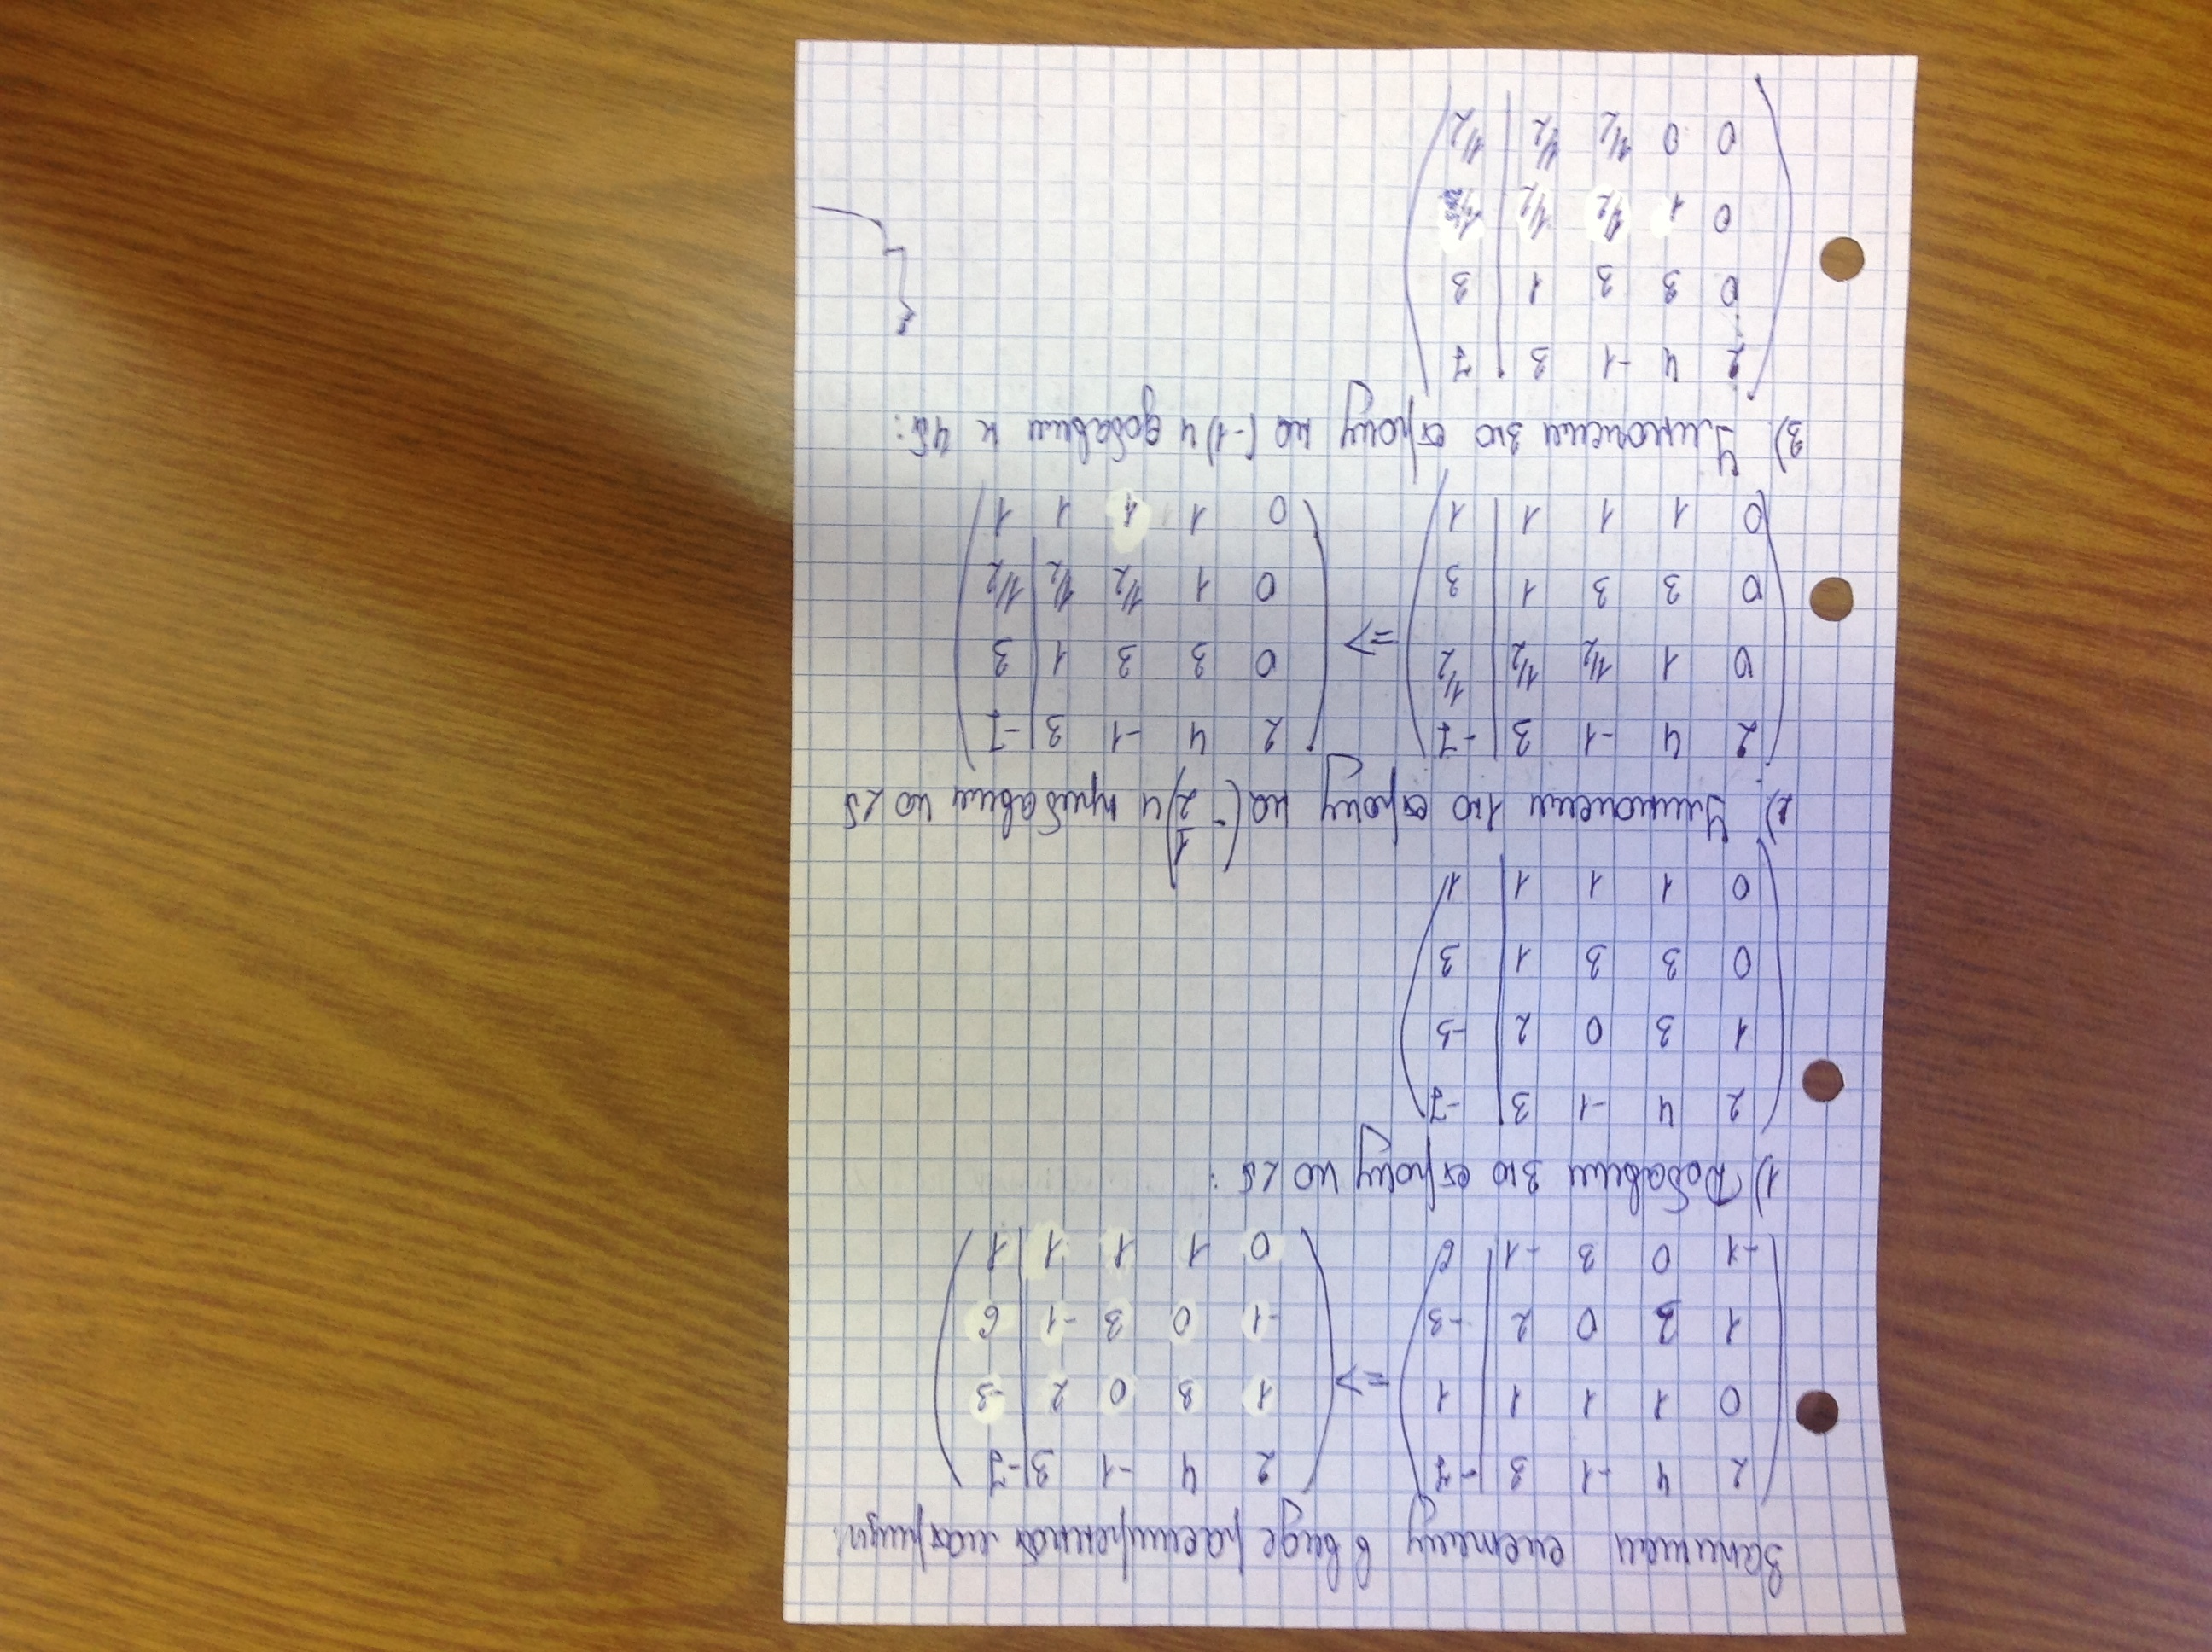 Запишем систему в виде расширенной матрицы:
2 4 -1 3 | -7 => 2 4 -1 3 | -7
0 1 1 1 | 1 1 3 0 2 | -3
1 3 0 2 | -3 -1 0 3 -1 | 6
-1 0 3 -1 | 6 0 1 1 1 | 1
1) Добавим 3ю строку ко 2й:
2 4 -1 3 | -7
1 3 0 2 | -3
0 3 3 1 | 3
0 1 1 1 | 1
2) Умножим 1ю строку на (-1/2) и прибавим ко 2й
2 4 -1 3 | -7 => 2 4 -1 3 | -7
0 1 1/2 1/2 | 1/2 0 3 3 1 | 3
0 3 3 1 | 3 0 1 1/2 1/2 | 1/2
0 1 1 1 | 1 0 1 1 1 | 1
3) Умножим 3ю строку на (-1) и добавим к 4й:
2 4 -1 3 | 7
0 3 3 1 | 3
0 1 1/2 1/2 |
0 0 1/2 1/2 | 1/2